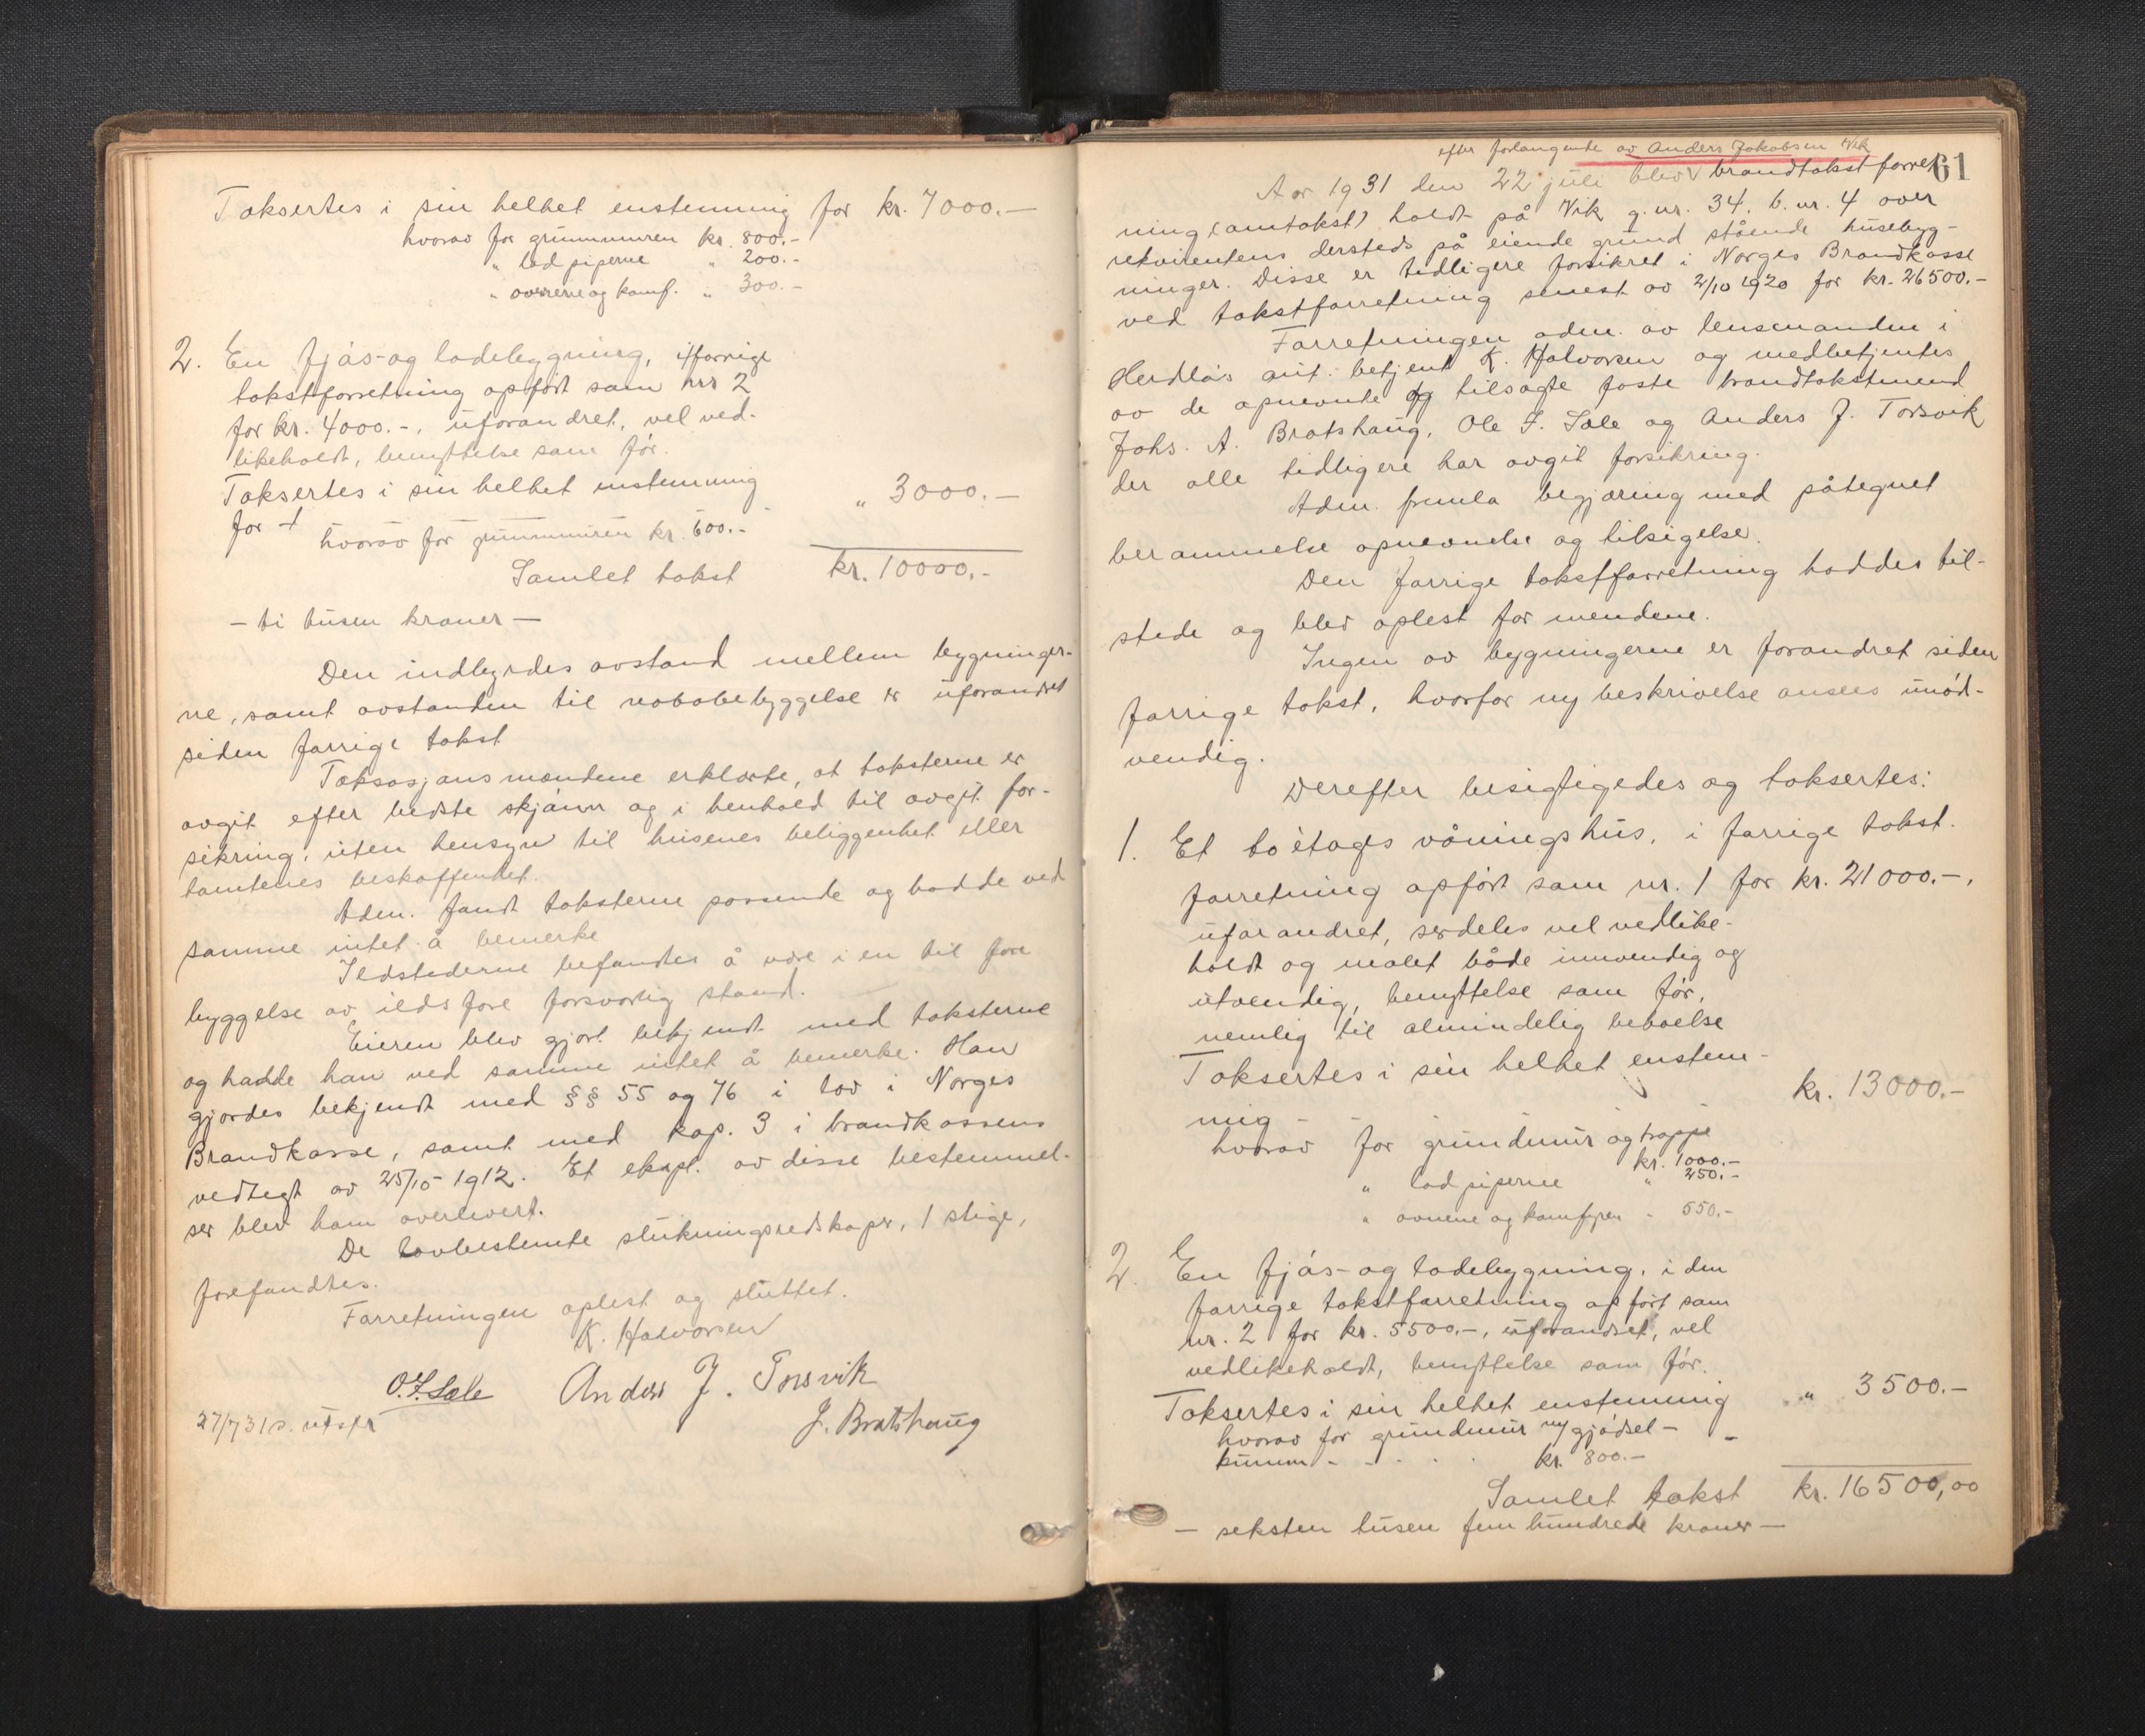 Taksertes i sin helhet enstemmig for kr. 7000.-
hvorav for grunnmuren kr. 800.-
" lad piperne " 200.-
" ovnerne og komf. " 300.-
2. En fjøs- og ladebygning, i forrige
takstforretning opført som nr 2
for kr. 4000.-, uforandret, vel ved-
likeholdt, benyttelse som før.
Taksertes i sin helhet enstemmig
for " 3000.-
hvorav for grunnmuren kr. 600.-
Samlet takst kr. 10000.-
- ti tusen kroner -
Den indbyrdes avstand mellem bygninger-
ne, samt avstanden til nabobebyggelse er uforandret
siden forrige takst
Taksasjonsmændene erklærte, at taksterne er
avgit efter bedste skjønn og i henhold til avgit for-
sikring, uten hensyn til husenes beliggenhet eller
tomtenes beskaffenhet.
Adm. fandt taksterne passende og hadde ved
samme intet å bemerke
Ildstederne befandtes å være i en til fore
byggelse av ildsfare forsvarlig stand.
Eieren blev gjort bekjendt med taksterne
og hadde han ved samme intet å bemerke. Han
gjordes bekjendt med §§ 55 og 76 i lov i Norges
Brandkasse, samt med kap. 3 i brandkassens
vedtegt av 25/10 1912. Et ekspl. av disse bestemmel-
ser blev ham overlevert.
De lovbestemte slukningsredskaper, 1 stige,
forefandtes.
Forretningen oplest og sluttet.
K. Halvorsen
O. J. Sæle Anders J. Torsvik
27/7 31 s. utskr J. Bratshaug
61
efter forlangende av Anders Jakobsen Vik
Aar 1931 den 22 juli blev brandtakstforret
ning (omtakst) holdt på Vik g.nr. 34, b.nr. 4 over
rekvirentens dersteds på eiende grund stående husebyg-
ninger. Disse er tidligere forsikret i Norges Brandkasse
ved takstforretning senest av 2/10 1920 for kr. 26500.-
Forretningen adm. av lensmanden i
Herdla's aut. betjent K. Halvorsen og medbetjentes
av de opnevnte og tilsagte faste brandtakstmend
Johs. A. Bratshaug, Ole J. Sæle og Anders J. Torsvik
der alle tidligere har avgit forsikring.
Adm. fremla begjæring med påtegnet
berammelse opnevnelse og tilsigelse.
Den forrige takstforretning haddes til-
stede og blev oplest for mendene.
Ingen av bygningerne er forandret siden
forrige takst, hvorfor ny beskrivelse ansees unød-
vendig.
Derefter besigtigedes og taksertes:
1. Et toetages våningshus, i forrige takst.
forretning opført som nr. 1 for kr. 21000.-,
uforandret, særdeles vel vedlike-
holdt og malet både innvendig og
utvendig, benyttelse som før,
nemlig til almindelig beboelse
Taksertes i sin helhet enstem-
mig - - kr. 13000.-
hvorav for grundmur og trappe
kr. 1000.-
" lad piperne " 250.-
" ovnene og komfyren " 550.-
2. En fjøs- og ladebygning, i den
forrige takstforretning opført som
nr. 2 for kr. 5500.-, uforandret, vel
vedlikeholdt, benyttelse som før.
Taksertes i sin helhet enstemmig " 3500.-
hvorav for grundmur og gjødsel-
kumm - - - kr. 800.-
Samlet takst kr. 16500,00
- seksten tusen fem hundrede kroner -